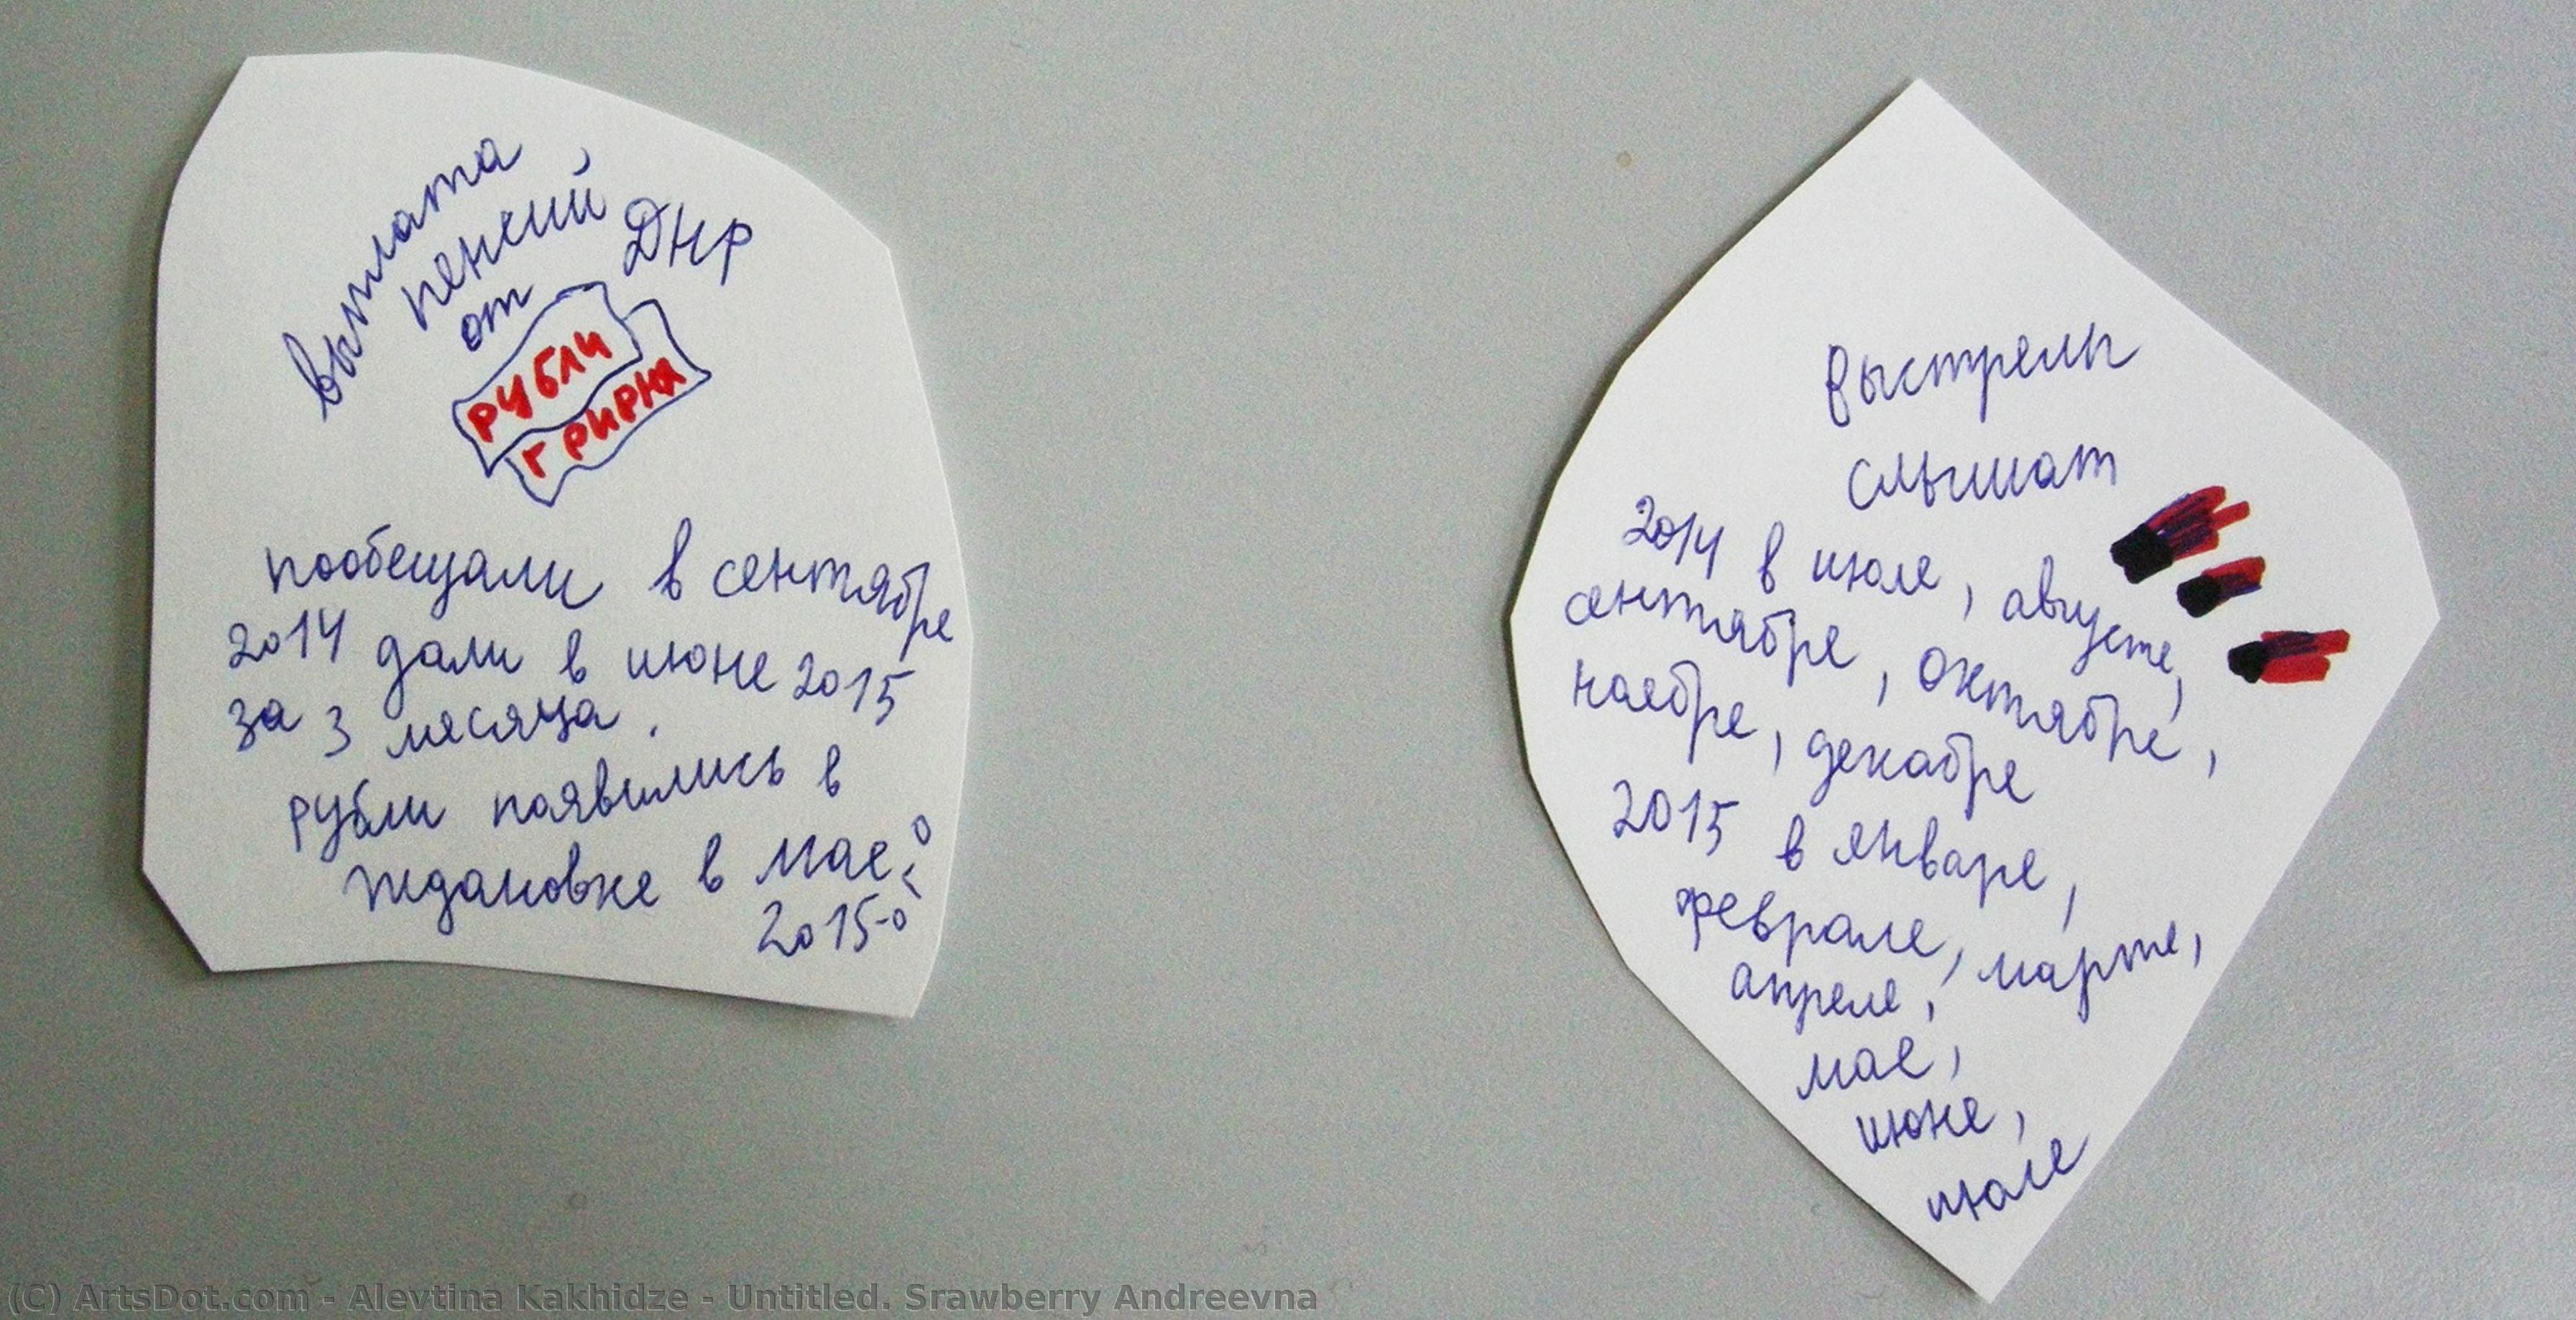 выплата
пенсий
от ДНР
РУБЛИ
ГРИВНА
пообещали в сентябре
2014 дали в июне 2015
за 3 месяца.
рубли появились в
Ждановке в мае
2015
выстрелы
слышат
2014 в июле, августе,
сентябре, октябре,
ноябре, декабре
2015 в январе,
феврале, марте,
апреле,
мае,
июне,
июле
(C) ArtsDot.com - Alevtina Kakhidze - Untitled. Srawberry Andreevna